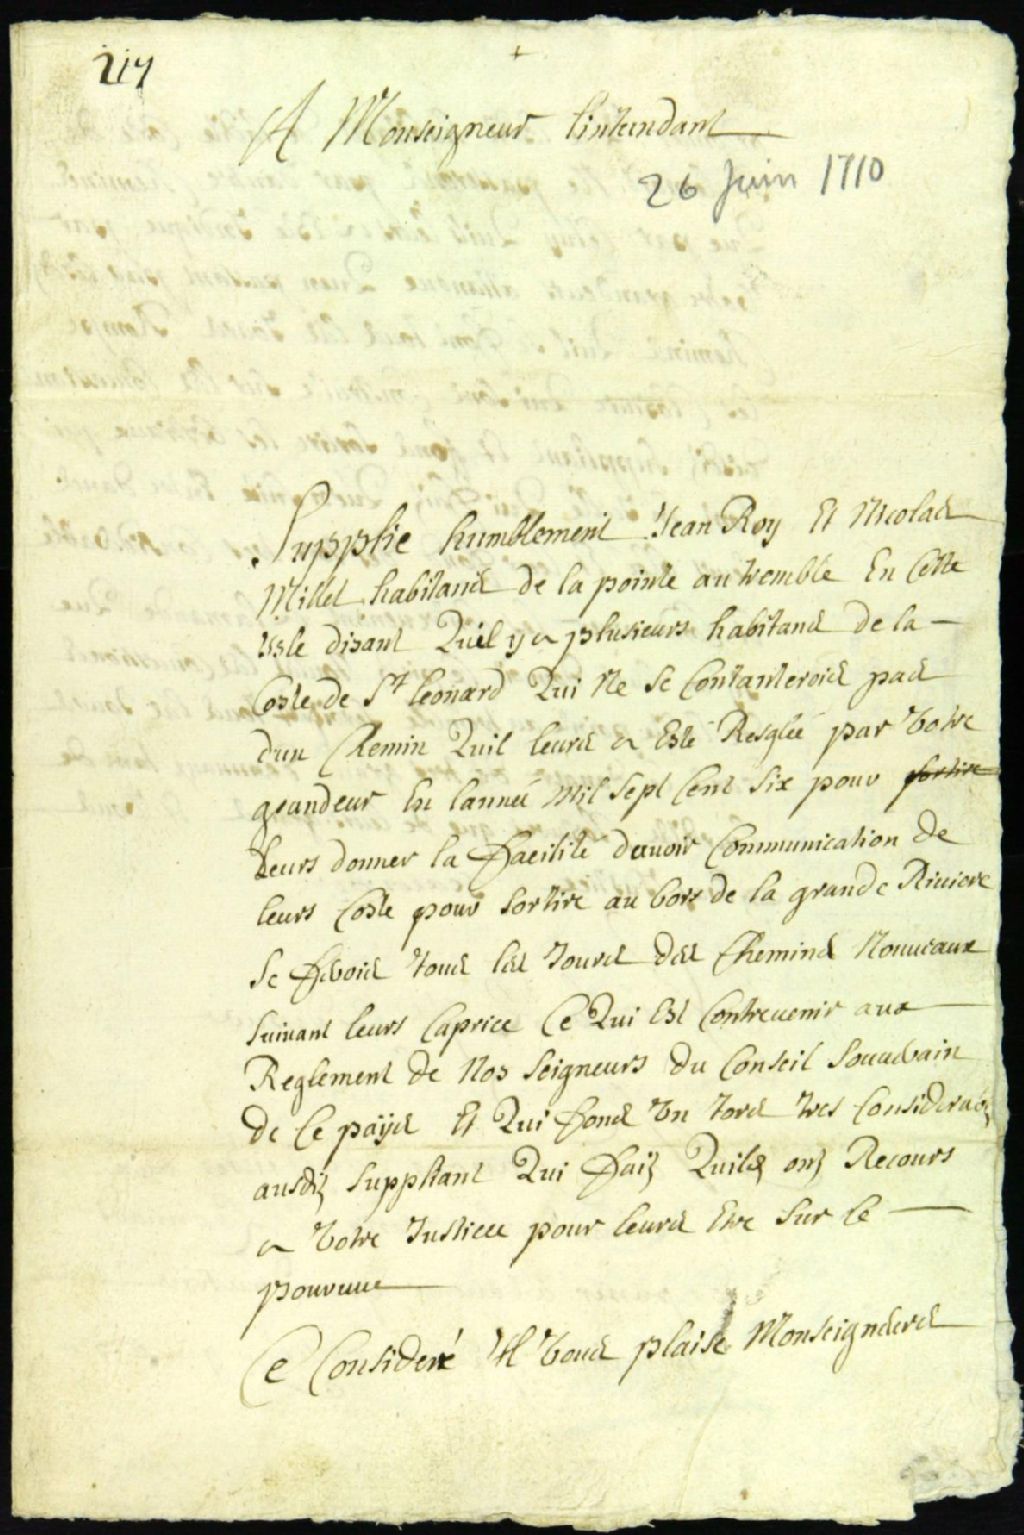 217
A Monseigneur lintendant
26 Juin 1710
Supplie humblement Jean Roy Et Nicolas
Millet habitans de la pointe au tremble En Cette
Isle disant Quil y a plusieurs habitans de la
Coste de St Leonard Qui Ne Se Contanterois pas
dun Chemin Quil leurs a Esté Resglée par Votre
grandeur En lanneé Mil Sept Cent Six pour sortire
Leurs donner la facilité dauoir Communication de
leurs Coste pour Sortire au bors de la grande Riuiere
Se fairois tous les Jours des Chemins Nouueaux
Suiuant leurs Caprice Ce Qui Est Contreuenir aux
Reglement de Nos Seigneurs du Conseil Souuerain
de Ce païjs Et Qui fond Vn tors tres Considerab
ausdit Suppliant Qui fait Quils ont Recours
a Votre Justice pour leurs Etre Sur Ce
pourueue
Ce Consideré Il Vous plaise Monseigneurs